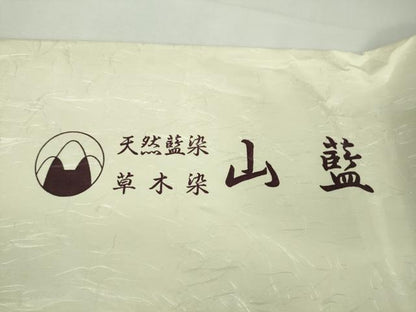 天然藍染
草木染
山藍